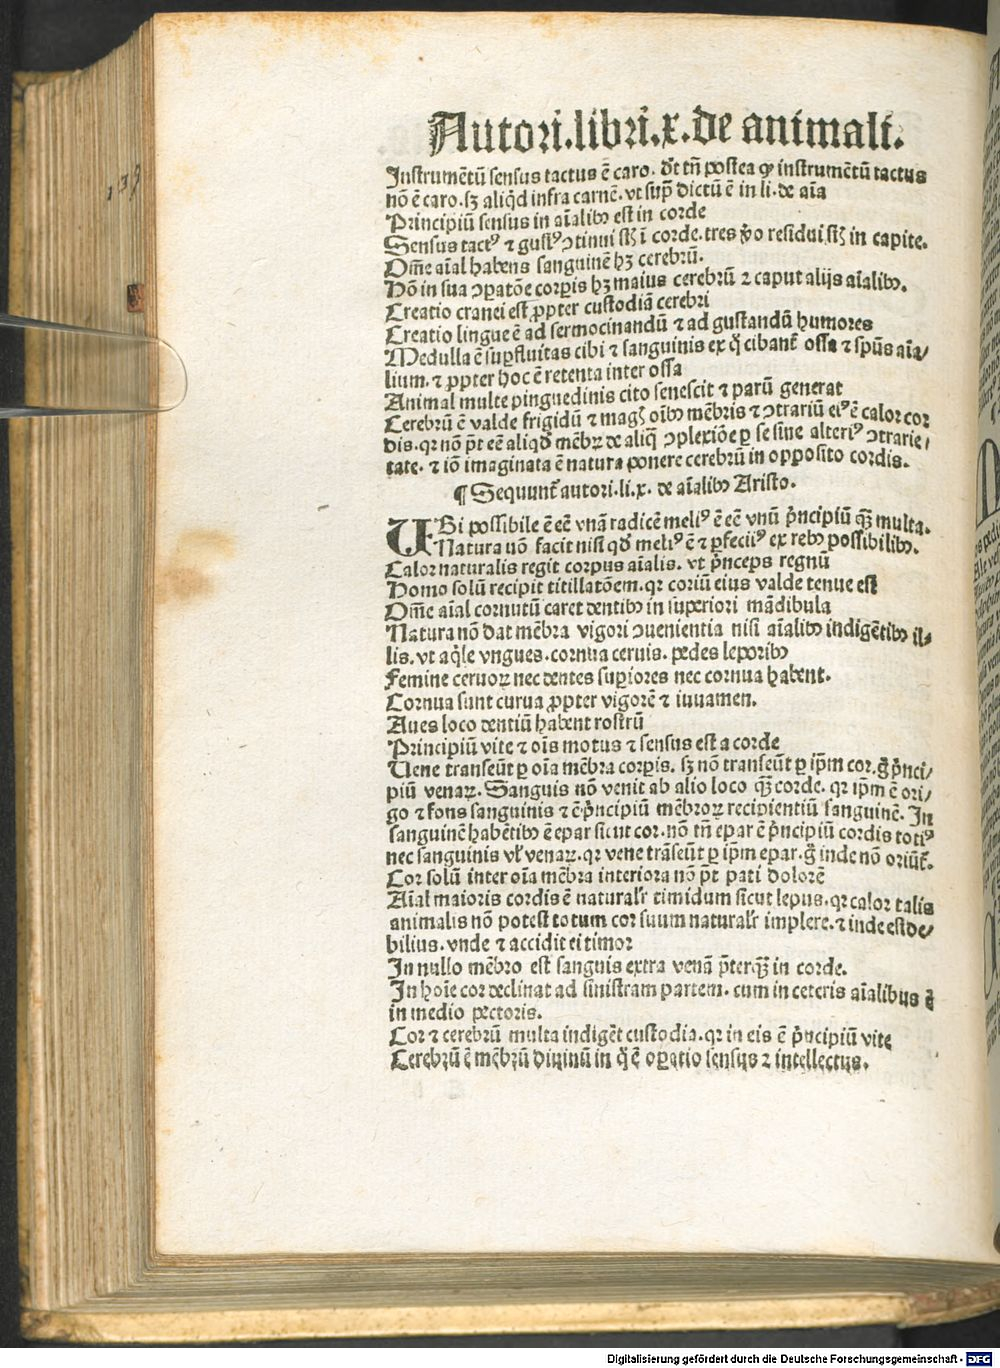 Autori.libri.x.de animali.
139
Instrumētū sensus tactus ē caro. dt̄ tn̄ postea ꝙ instrumētū tactus
nō ē caro.sꝫ aliqͥd infra carnē.vt sup̄ dictū ē in li.de aīa
Principiū sensus in aīalibꝰ est in corde
Sensus tactꝰ ⁊ gustꝰ ꝯtinui sūt ī corde.tres ꝟo residui sūt in capite.
Om̄e aīal habens sanguinē hꝫ cerebrū.
Hō in sua ꝯꝑatōe corꝑis hꝫ maius cerebrū ⁊ caput alijs aīalibꝰ.
Creatio cranei est ꝓpter custodiā cerebri
Creatio lingue ē ad sermocinandū ⁊ ad gustandū humores
Medulla ē suꝑfluitas cibi ⁊ sanguinis ex q̄ cibant̄ ossa ⁊ spūs aīa/
lium.⁊ ꝓpter hoc ē retenta inter ossa
Animal multe pinguedinis cito senescit ⁊ parū generat
Cerebrū ē valde frigidū ⁊ mag oībꝰ mēbris ⁊ ꝯtrariū eiꝰ ē calor cor
dis.qꝛ nō pt̄ eē aliqd̄ mēbꝝ de aliq̄ ꝯplexiōe ꝑ se sine alteriꝰ ꝯtrarie/
tate.⁊ iō imaginata ē natura ponere cerebrū in opposito cordis.
¶ Sequunt̄ autori.li.x. de aīalibꝰ Aristo.
UBi possibile ē eē vnā radicē meliꝰ ē eē vnū pͥncipiū qꝫ multa.
Natura nō facit nisi qd̄ meliꝰ ē ⁊ ꝑfectiꝰ ex rebꝰ possibilibꝰ.
Calor naturalis regit corpus aīalis. vt pͥnceps regnū
Homo solū recipit titillatōem.qꝛ coriū eius valde tenue est
Om̄e aīal cornutū caret dentibꝰ in superiori mādibula
Natura nō dat mēbra vigori ꝯuenientia nisi aīalibꝰ indigētibꝰ il⸗
lis.vt aqͥle vngues.cornua ceruis. pedes leporibꝰ
Femine ceruoꝝ nec dentes suꝑiores nec cornua habent.
Cornua sunt curua ꝓpter vigorē ⁊ iuuamen.
Aues loco dentiū habent rostrū
Principiū vite ⁊ oīs motus ⁊ sensus est a corde
Uene transeūt ꝑ oīa mēbra corꝑis. sꝫ nō transeūt ꝑ ip̄m cor.g̊ pͥnci/
piū venaꝝ. Sanguis nō venit ab alio loco qꝫ corde. qꝛ ip̄m ē ori/
go ⁊ fons sanguinis ⁊ ē pͥncipiū mēbroꝝ recipientiū sanguinē. In
sanguinē habētibꝰ ē epar sicut cor.nō tn̄ epar ē pͥncipiū cordis totiꝰ
nec sanguinis vl̄ venaꝝ.qꝛ vene trāseūt ꝑ ip̄m epar.g̊ inde nō oriūt̄.
Cor solū inter oīa mēbra interiora nō pt̄ pati dolorē
Aīal maioris cordis ē naturalr̄ timidum sicut lepus.qꝛ calor talis
animalis nō potest totum cor suum naturalr̄ implere.⁊ inde est de/
bilius.vnde ⁊ accidit ei timor
In nullo mēbro est sanguis extra venā p̄terqꝫ in corde.
In hoīe cor declinat ad sinistram partem. cum in ceteris aīalibus ē
in medio pectoris.
Cor ⁊ cerebrū multa indigēt custodia.qꝛ in eis ē pͥncipiū vite
Cerebrū ē mēbrū diuinū in q̄ ē oꝑatio sensus ⁊ intellectus.
Digitalisierung gefördert durch die Deutsche Forschungsgemeinschaft - DFG